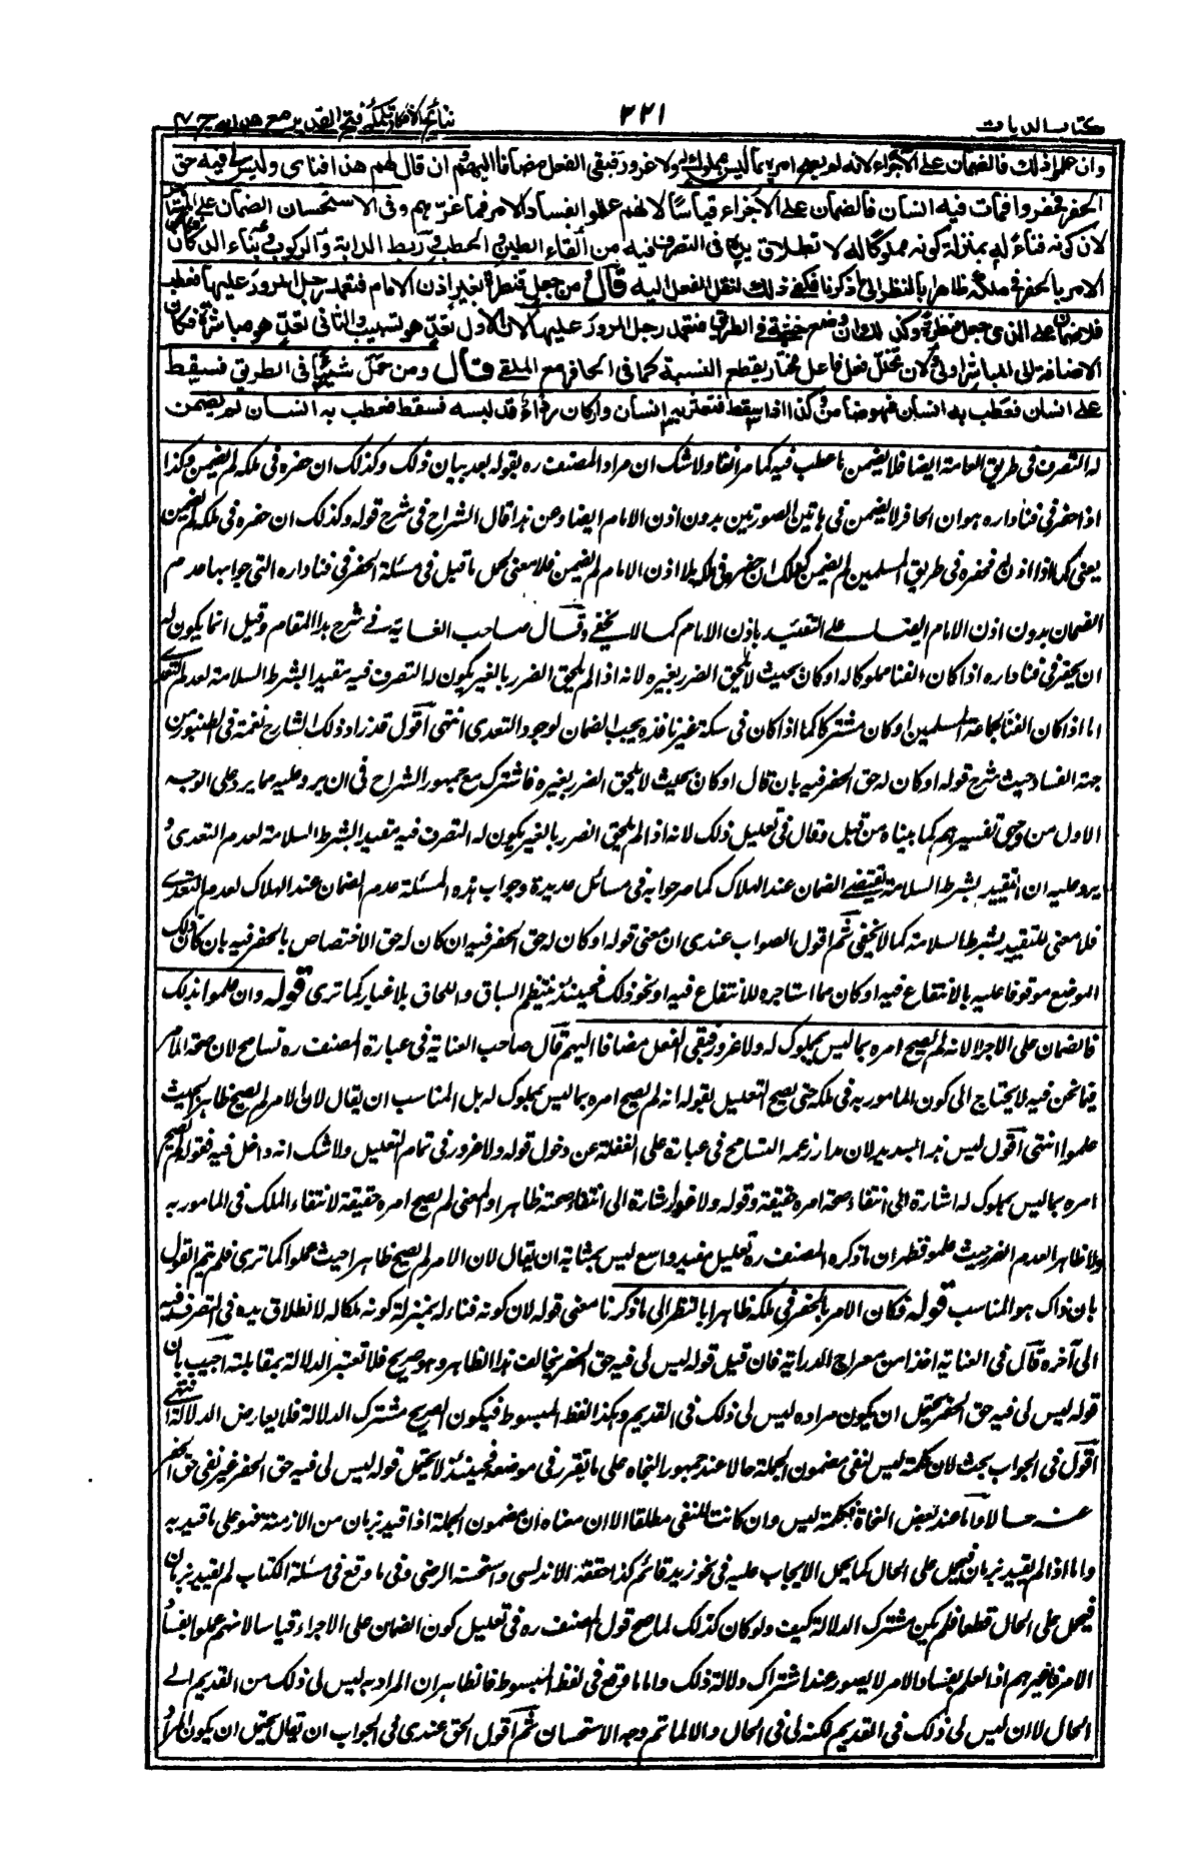 كتاب الديات
٢٢١
نتائج الافكار تكملة فتح القدير مع هدايه ج ٧
وان علموا ذلك فالضمان على الأجراء لانه لم يصح امره بما ليس بمملوك له ولا غرور فبقى الفعل مضافا اليهم وان قال لهم هذا فنائى وليس لى فيه حق
الحفر فحفروا فمات فيه انسان فالضمان على الأجراء قياسًا لانهم علموا بفساد الامر فما غرّهم وفى الاستحسان الضمان على المستأجر
لان كونه فناءً له بمنزلة كونه مملوكًا له لانطلاق يده فى التصرف فيه من القاء الطين والحطب وربط الدابة والركوب وبناء الدكان فكان
الامر بالحفر فى ملكه ظاهرا بالنظر الى ما ذكرنا فكفى ذلك لنقل الفعل اليه قال ومن جعل قنطرة بغير اذن الامام فتعمد رجل المرور عليها فعطب
فلا ضمان على الذى جعل القنطرة وكذلك ان وضع خشبة فى الطريق فتعمد رجل المرور عليها لان الاول تعدٍّ هو تسبيب والثانى تعدٍّ هو مباشرة فكان
الاضافة الى المباشر اولى ولان تخلل فعل فاعل مختار يقطع النسبة كما فى الحافر مع الملقى قال ومن حمل شيئًا فى الطريق فسقط
على انسان فعطب به انسان فهو ضامن وكذا اذا سقط فتعثر به انسان وان كان رداءً قد لبسه فسقط فعطب به انسان لم يضمن
له التصرف فى طريق العامة ايضا فلا يضمن ما عطب فيه كما مر آنفا ولا شك ان مراد المصنف ره بقوله بعد بيان ذلك وكذلك ان حفره فى ملكه لم يضمن وكذا
اذا حفر فى فناء داره هو ان الحافر لا يضمن فى هاتين الصورتين بدون اذن الامام ايضا وعن هذا قال الشراح فى شرح قوله وكذلك ان حفره فى ملكه لم يضمن
يعنى كما اذا اذن له فحفره فى طريق المسلمين لم يضمن كذلك ان حفره فى ملكه بلا اذن الامام لم يضمن فلا معنى لحمل ما قيل فى مسئلة الحفر فى فناء داره التى جوابها عدم
الضمان بدون اذن الامام ايضا على التقييد باذن الامام كما لا يخفى وقال صاحب الغاية فى شرح هذا المقام وقيل انما يكون له
ان يحفر فى فناء داره اذا كان الفنا مملوكا له او كان بحيث لا يلحق الضرر بغيره لانه اذا لم يلحق الضرر بالغير يكون له التصرف فيه مقيدا بشرط السلامة لعدم التعدى
اما اذا كان الفنا لجماعة المسلمين او كان مشتركا كما اذا كان فى سكة غير نافذة يجب الضمان لوجود التعدى انتهى اقول قد زاد ذلك الشارح نغمة فى الطنبور من
جهة الفساد حيث شرح قوله او كان له حق الحفر فيه بان قال او كان بحيث لا يلحق الضرر بغيره فاشترك مع جمهور الشراح فى ان يرد عليه ما يرد على الوجه
الاول من وجهى تفسيرهم كما بيناه من قبل وقال فى تعليل ذلك لانه اذا لم يلحق الضرر بالغير يكون له التصرف فيه مقيدا بشرط السلامة لعدم التعدى و
يرد عليه ان التقييد بشرط السلامة يقتضى الضمان عند الهلاك كما صرحوا به فى مسائل عديدة وجواب هذه المسئلة عدم الضمان عند الهلاك لعدم التعدى
فلا معنى للتقييد بشرط السلامة كما لا يخفى ثم اقول الصواب عندى ان معنى قوله او كان له حق الحفر فيه ان كان له حق الاختصاص بالحفر فيه بان كان ذلك
الموضع موقوفا عليه بالانتفاع فيه او كان مما استاجره للانتفاع فيه او نحو ذلك فحينئذ ينتظم السباق واللحاق بلا غبار كما ترى قوله وان علموا ذلك
فالضمان على الاجرا لانه لم يصح امره بما ليس بمملوك له ولا غرور فبقى الفعل مضافا اليهم قال صاحب العناية فى عبارة المصنف ره تسامح لان صحة الامر
فيما نحن فيه لا يحتاج الى كون المامور به فى ملكه حتى يصح التعليل بقوله انه لم يصح امره بما ليس بمملوك له بل المناسب ان يقال لان الامر لم يصح ظاهرا حيث
علموا انتهى اقول ليس هذا بسديد لان مدار زعمه التسامح فى عبارة على الغفلة عن دخول قوله ولا غرور فى تمام التعليل ولا شك انه داخل فيه فقوله لم يصح
امره بما ليس بمملوك له اشارة الى انتفاء صحة امره حقيقة وقوله ولا غرور اشارة الى انتفاء صحته ظاهرا والمعنى لم يصح امره حقيقة لانتفاء الملك فى المامور به
ولا ظاهرا لعدم الغرر حيث علموا فظهر ان ما ذكره المصنف ره تعليل مفيد واسع ليس بمثابة ان يقال لان الامر لم يصح ظاهرا حيث علموا كما ترى فلم يتم القول
بان ذاك هو المناسب قوله فكان الامر بالحفر فى ملكه ظاهرا بالنظر الى ما ذكرنا معنى قوله لان كونه فناء له بمنزلة كونه ملكا له لانطلاق يده فى التصرف فيه
الى آخره قال فى العناية اخذا من معراج الدراية فان قيل قوله ليس لى فيه حق الحفر يخالف هذا الظاهر وهو صريح فلا تعتبر الدلالة بمقابلته اجيب بان
قوله ليس لى فيه حق الحفر يحتمل ان يكون مراده ليس لى ذلك فى القديم وهكذا لفظ المبسوط فيكون الصريح مشترك الدلالة فلا يعارض الدلالة انتهى
اقول فى الجواب بحث لان كلمة ليس لنفى مضمون الجملة حالا عند جمهور النحاه على ما تقرر فى موضعه فحينئذ لا يحتمل قوله ليس لى فيه حق الحفر غير نفى حق الحفر
عنه حالا واما عند بعض النحاة فكلمة ليس وان كانت للنفى مطلقا الا ان معناه ان مضمون الجملة اذا قيد بزمان من الازمنة فهو على ما قيد به
واما اذا لم يقيد بزمان فيحمل على الحال كما يحمل الايجاب عليه فى نحو زيد قائم كذا حققه الاندلسى واستحسنه الرضى وفى ما وقع فى مسئلة الكتاب لم يقيد بزمان
فيحمل على الحال قطعا فلم يكن مشترك الدلالة كيف ولو كان كذلك لما صح قول المصنف ره فى تعليل كون الضمان على الاجراء قياسا لانهم علموا بفساد
الامر فما غرهم اذ العلم بفساد الامر لا يتصور عند اشتراك دلالة ذلك واما ما وقع فى لفظ المبسوط فالظاهر ان المراد به ليس لى ذلك من القديم الى
الحال لا ان ليس لى ذلك فى القديم لكنه لى فى الحال والا لما تم وجه الاستحسان ثم اقول الحق عندى فى الجواب ان يقال يحتمل ان يكون المراد